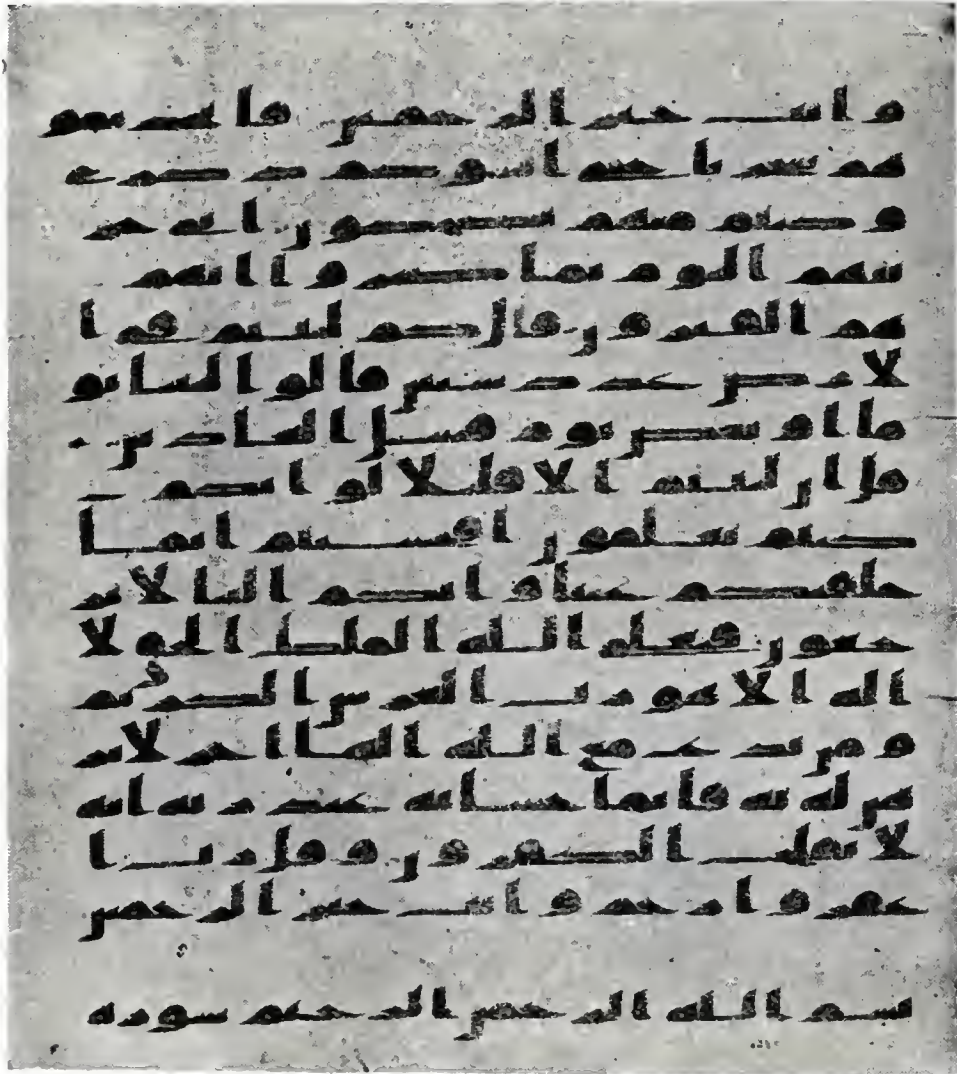 وانت خير الرحمين فاتخذتمو
هم سخريا حتى انسوكم ذكرى
وكنتم منهم تضحكون انى جز
يتهم اليوم بما صبروا انهم
هم الفائزون قل كم لبثتم فى ا
لارض عدد سنين قالوا لبثنا يو
ما او بعض يوم فسل العادين
قل ان لبثتم الا قليلا لو انكم
كنتم تعلمون افحسبتم انما
خلقنكم عبثا وانكم الينا لا تر
جعون فتعلى الله الملك الحق لا
اله الا هو رب العرش الكريم
ومن يدع مع الله الها اخر لا بر
هن له به فانما حسابه عند ربه انه
لا يفلح الكفرون وقل رب ا
غفر وارحم وانت خير الرحمين
بسم الله الرحمن الرحيم سورة